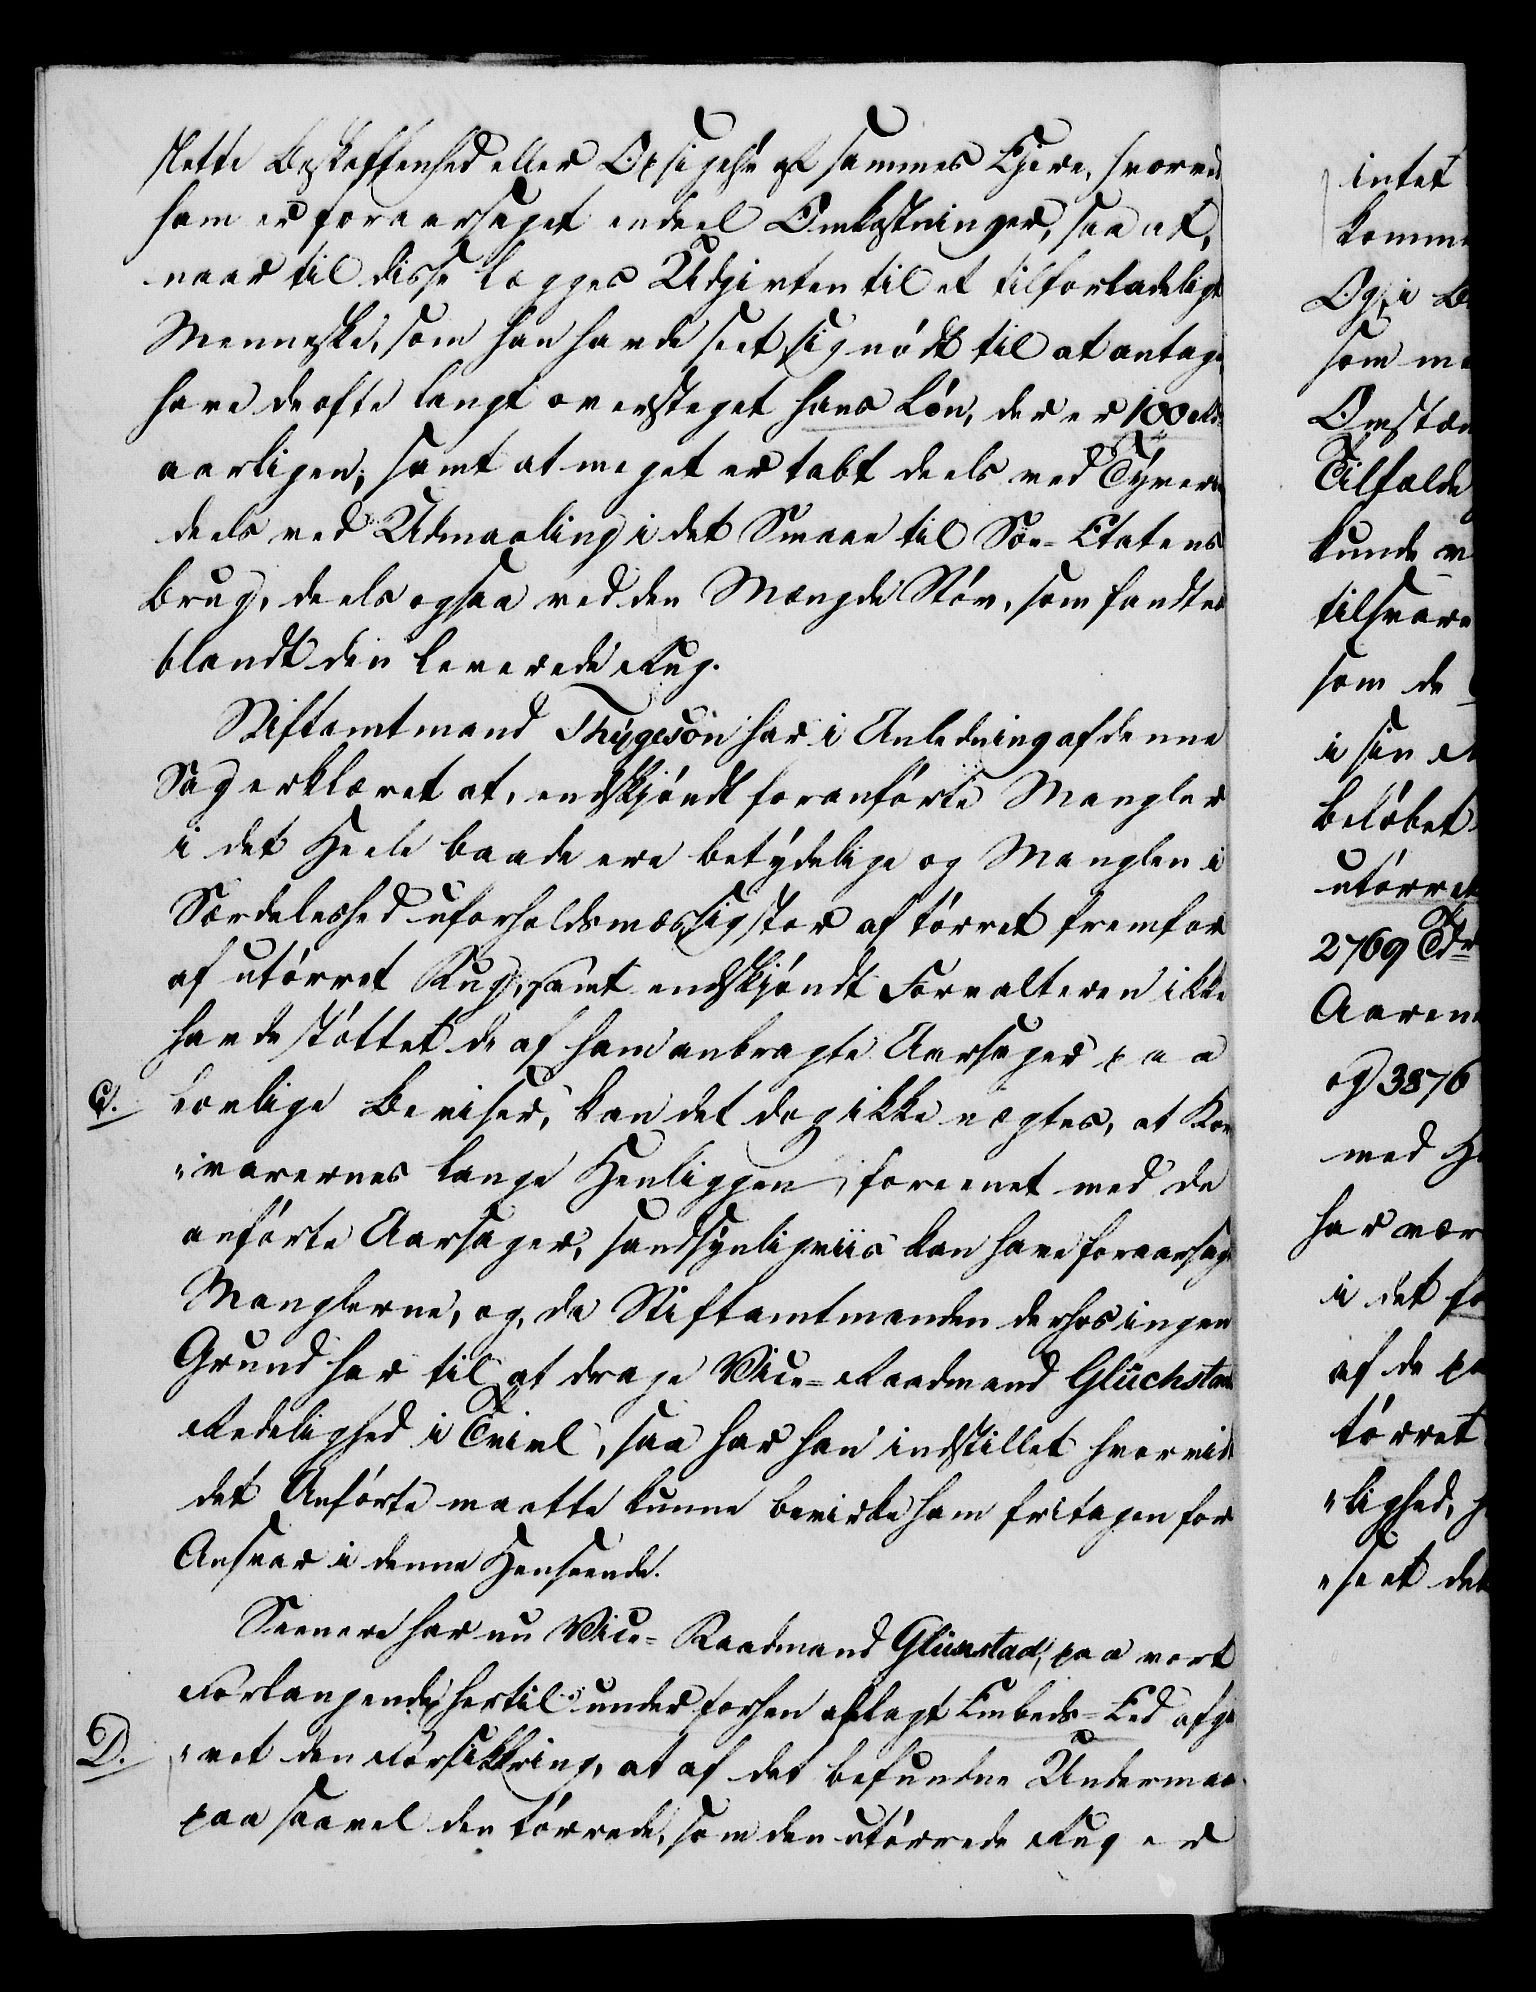 slette Beskaffenhed eller Opsigelse af sammes Ejere, hvorved
ham er foraarsaget endeel Omkostninger, saa at,
naar til disse lægges Udgivten til et tilforladeligt
Menneske, som han havde seet sig nødt til at antage
have de ofte langt oversteget hans Løn, der er 100 Rd.
aarligen; samt at meget er tabt deels ved Tyverie
deels ved Udmaaling i det Smaae til Søe-Etatens
Brug, deels ogsaa ved den Mængde Støv, som fandtes
blandt den leverede Rug.
Stiftamtmand Thygeson har i Anledning af denne
Sag erklæret at, endskjøndt foranførte Mangler
i det Heele baade ere betydelige og Manglen i
Særdeleshed uforholdsmæssig stor af tørret fremfor
af utørret Rug, samt endskjøndt Forvalteren ikke
havde støttet de af ham anbragte Aarsager paa
C. lovlige Beviser, kan det dog ikke nægtes, at Korn
"varernes lange Henliggen, foreenet med de
anførte Aarsager, sandsynligviis kan have foraarsaget
Manglerne, og, da Stiftamtmanden derhos ingen
Grund har til at drage Vice-Raadmand Glüchstads
Redelighed i Tvivl, saa har han indstillet hvorvidt
det Anførte maatte kunne bevirke ham fritagen for
Ansvar i denne Henseende.
Seenere har nu Vice-Raadmand Glückstad, paa vort
Forlangende, hertil under forhen aflagt Embeds-Eed afgi
D. "vet den Forsikkring, at af det befundne Undermaal
paa saavel den tørrede, som den utørrede Rug er
intet
komme
Og, i
som
Omstæn
Tilfælde
kunde
tilsvare
som de
i sin
beløbet
utørret
2769 Tdr
Aarene
og 3876
med
har vær
i det
af de
tørret
"lighed,
"seet det